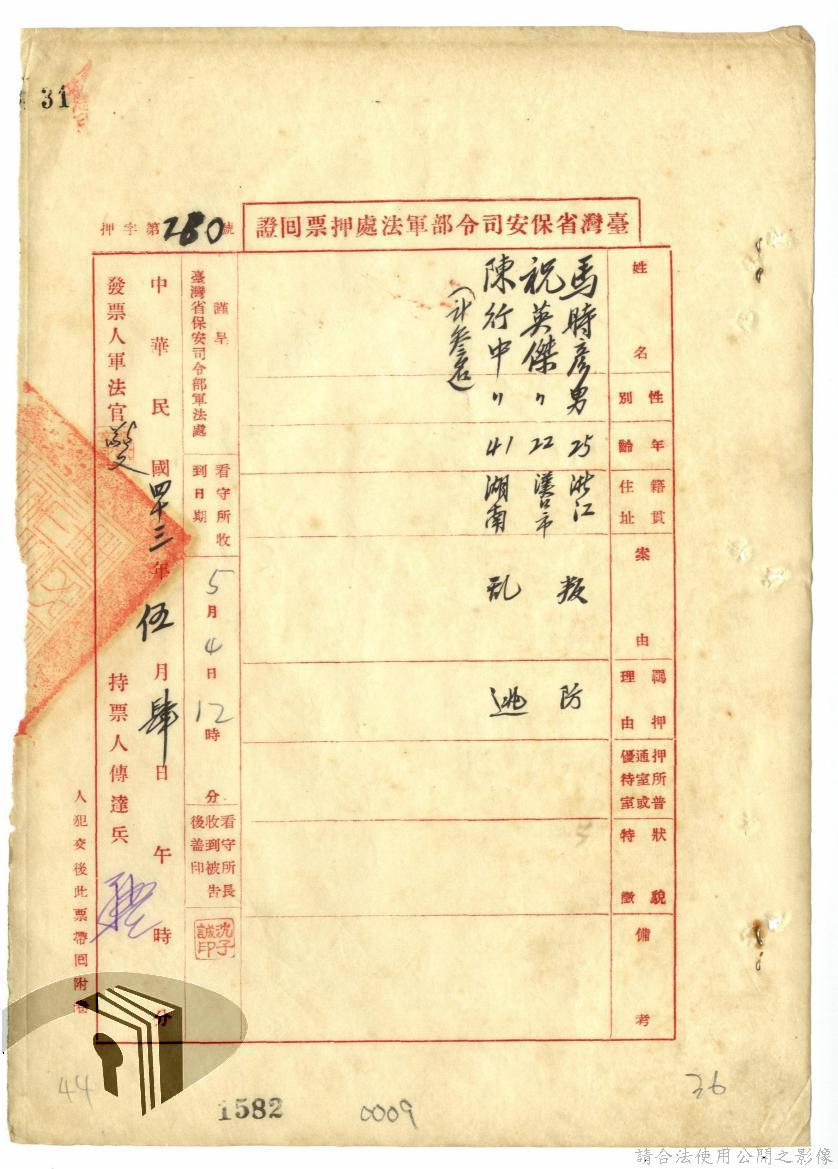 31
臺灣省保安司令部軍法處押票回證
押字第280號
姓名
性別
年齡
籍貫
住址
案由
羈押理由
押所普通室或優待室
特徵狀貌
備考
馬時彥 男 25 浙江
祝英傑 〃 22 漢口市
陳行中 〃 41 湖南
(計叁名)
叛乱
防逃
謹呈
臺灣省保安司令部軍法處
看守所收到日期
5月4日12時 分
看守所長收到被告後蓋印
沈子誠印
中華民國四十三年伍月肆日午 時 分
發票人軍法官
持票人傳達兵
人犯交後此票帶回附卷
44
1582
0009
36
請合法使用公開之影像